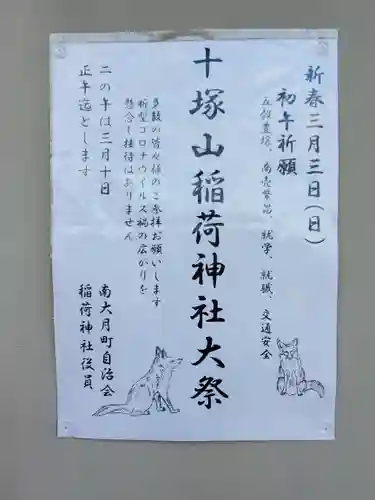 新春三月三日(日)
初午祈願
五穀豊穣、商売繁盛、就学、就職、交通安全
十塚山稲荷神社大祭
多数の皆々様のご参拝お願いします
新型コロナウイルス禍の広がりを
懸念し接待はありません
二の午は三月十日
正午迄とします
南大月町自治会
稲荷神社役員